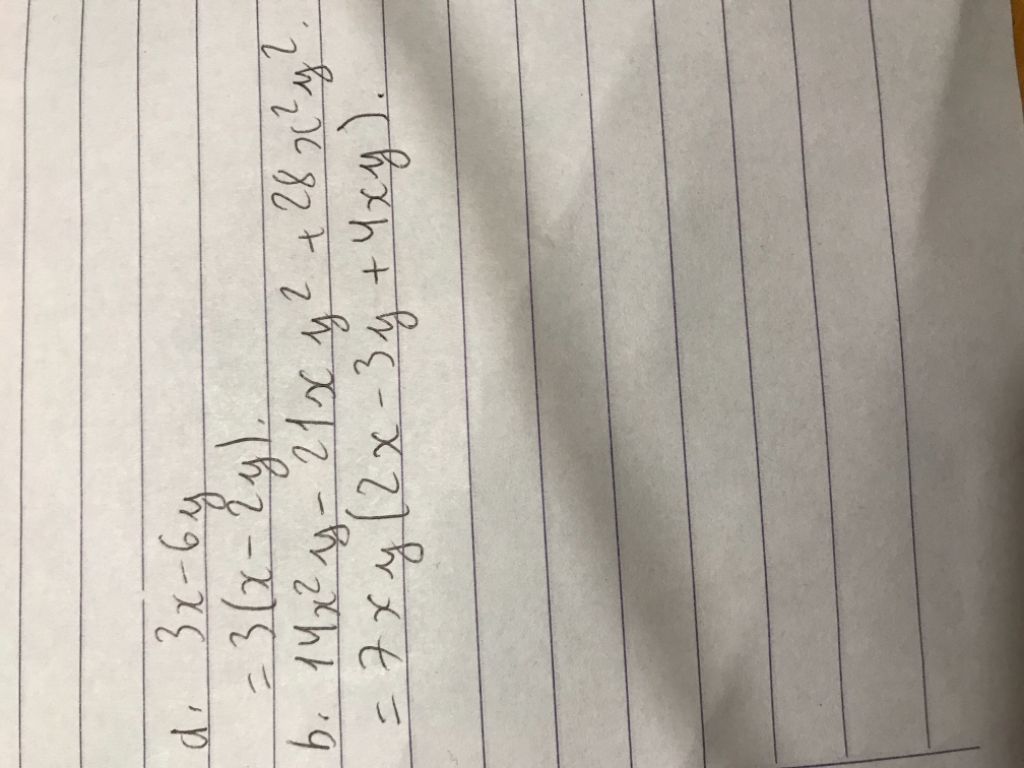 a. 3x - 6y
= 3(x - 2y).
b. 14x²y - 21xy² + 28x²y².
= 7xy(2x - 3y + 4xy).